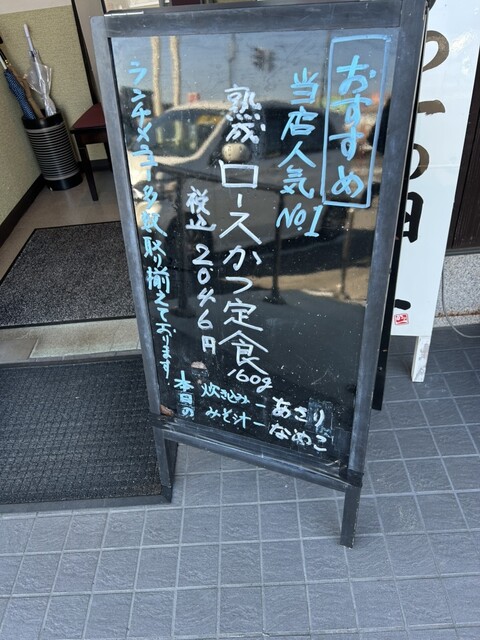 おすすめ
当店人気No.1
熟成 ロースかつ定食 160g
税込 2046円
本日の
炊き込みーあさり
みそ汁ーなめこ
ランチメニュー多数取り揃えております